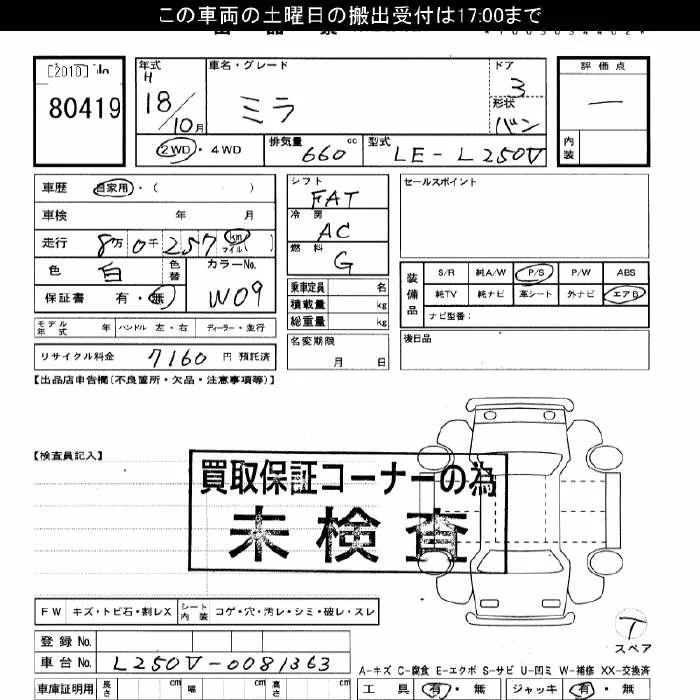 この車両の土曜日の搬出受付は17:00まで
[2010]
80419
年式
H
18/10月
車名・グレード
ミラ
ドア
3
形状
バン
評価点
―
内装
2WD・4WD
排気量 660 cc
型式 LE-L250V
車歴 自家用・( )
車検 年 月
走行 8万 0千 257 km マイル( )
色 白 色替
カラーNo. W09
保証書 有・無
モデル年式 年 ハンドル 左・右 ディーラー・並行
リサイクル料金 7160 円 預託済
シフト FAT
冷房 AC
燃料 G
乗車定員 名
積載量 kg
総重量 kg
名変期限
月 日
セールスポイント
装備品
S/R 純A/W P/S P/W ABS
純TV 純ナビ 革シート 外ナビ エアB
ナビ型番:
後日品
【出品店申告欄(不良箇所・欠品・注意事項等)】
【検査員記入】
買取保証コーナーの為
未検査
FW キズ・トビ石・割レX シート内装 コゲ・穴・汚レ・シミ・破レ・スレ
登録No.
車台No. L250V-0081363
車庫証明用 長さ cm 幅 cm 高さ cm
T
スペア
A-キズ C-腐食 E-エクボ S-サビ U-凹ミ W-補修 XX-交換済
工具 有・無 ジャッキ 有・無